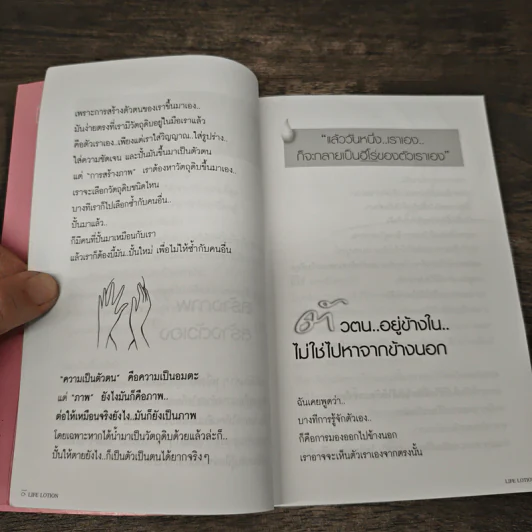 เพราะการสร้างตัวตนของเราขึ้นมาเอง..
มันง่ายตรงที่เรามีวัตถุดิบอยู่ในมือเราแล้ว
คือตัวเราเอง..เพียงแต่เราใส่วิญญาณ..ใส่รูปร่าง..
ใส่ความชัดเจน และปั้นมันขึ้นมาเป็นตัวตน
แต่ "การสร้างภาพ" เราต้องหาวัตถุดิบขึ้นมาเอง..
เราจะเลือกวัตถุดิบชนิดไหน
บางทีเราก็ไปเลือกซ้ำกับคนอื่น..
ปั้นมาแล้ว..
ก็มีคนที่ปั้นมาเหมือนกับเรา
แล้วเราก็ต้องขยี้มัน..ปั้นใหม่ เพื่อไม่ให้ซ้ำกับคนอื่น
"ความเป็นตัวตน" คือความเป็นอมตะ
แต่ "ภาพ" ยังไงมันก็คือภาพ..
ต่อให้เหมือนจริงยังไง..มันก็ยังเป็นภาพ
โดยเฉพาะหากได้น้ำมาเป็นวัตถุดิบด้วยแล้วล่ะก็..
ปั้นให้ตายยังไง..ก็เป็นตัวเป็นตนได้ยากจริงๆ
LIFE LOTION
"แล้ววันหนึ่ง..เราเอง..
ก็จะกลายเป็นฮีโร่ของตัวเราเอง"
ตัวตน..อยู่ข้างใน..
ไม่ใช่ไปหาจากข้างนอก
ฉันเคยพูดว่า..
บางทีการรู้จักตัวเอง..
ก็คือการมองออกไปข้างนอก
เราอาจจะเห็นตัวเราเองจากตรงนั้น
LIFE LOTION